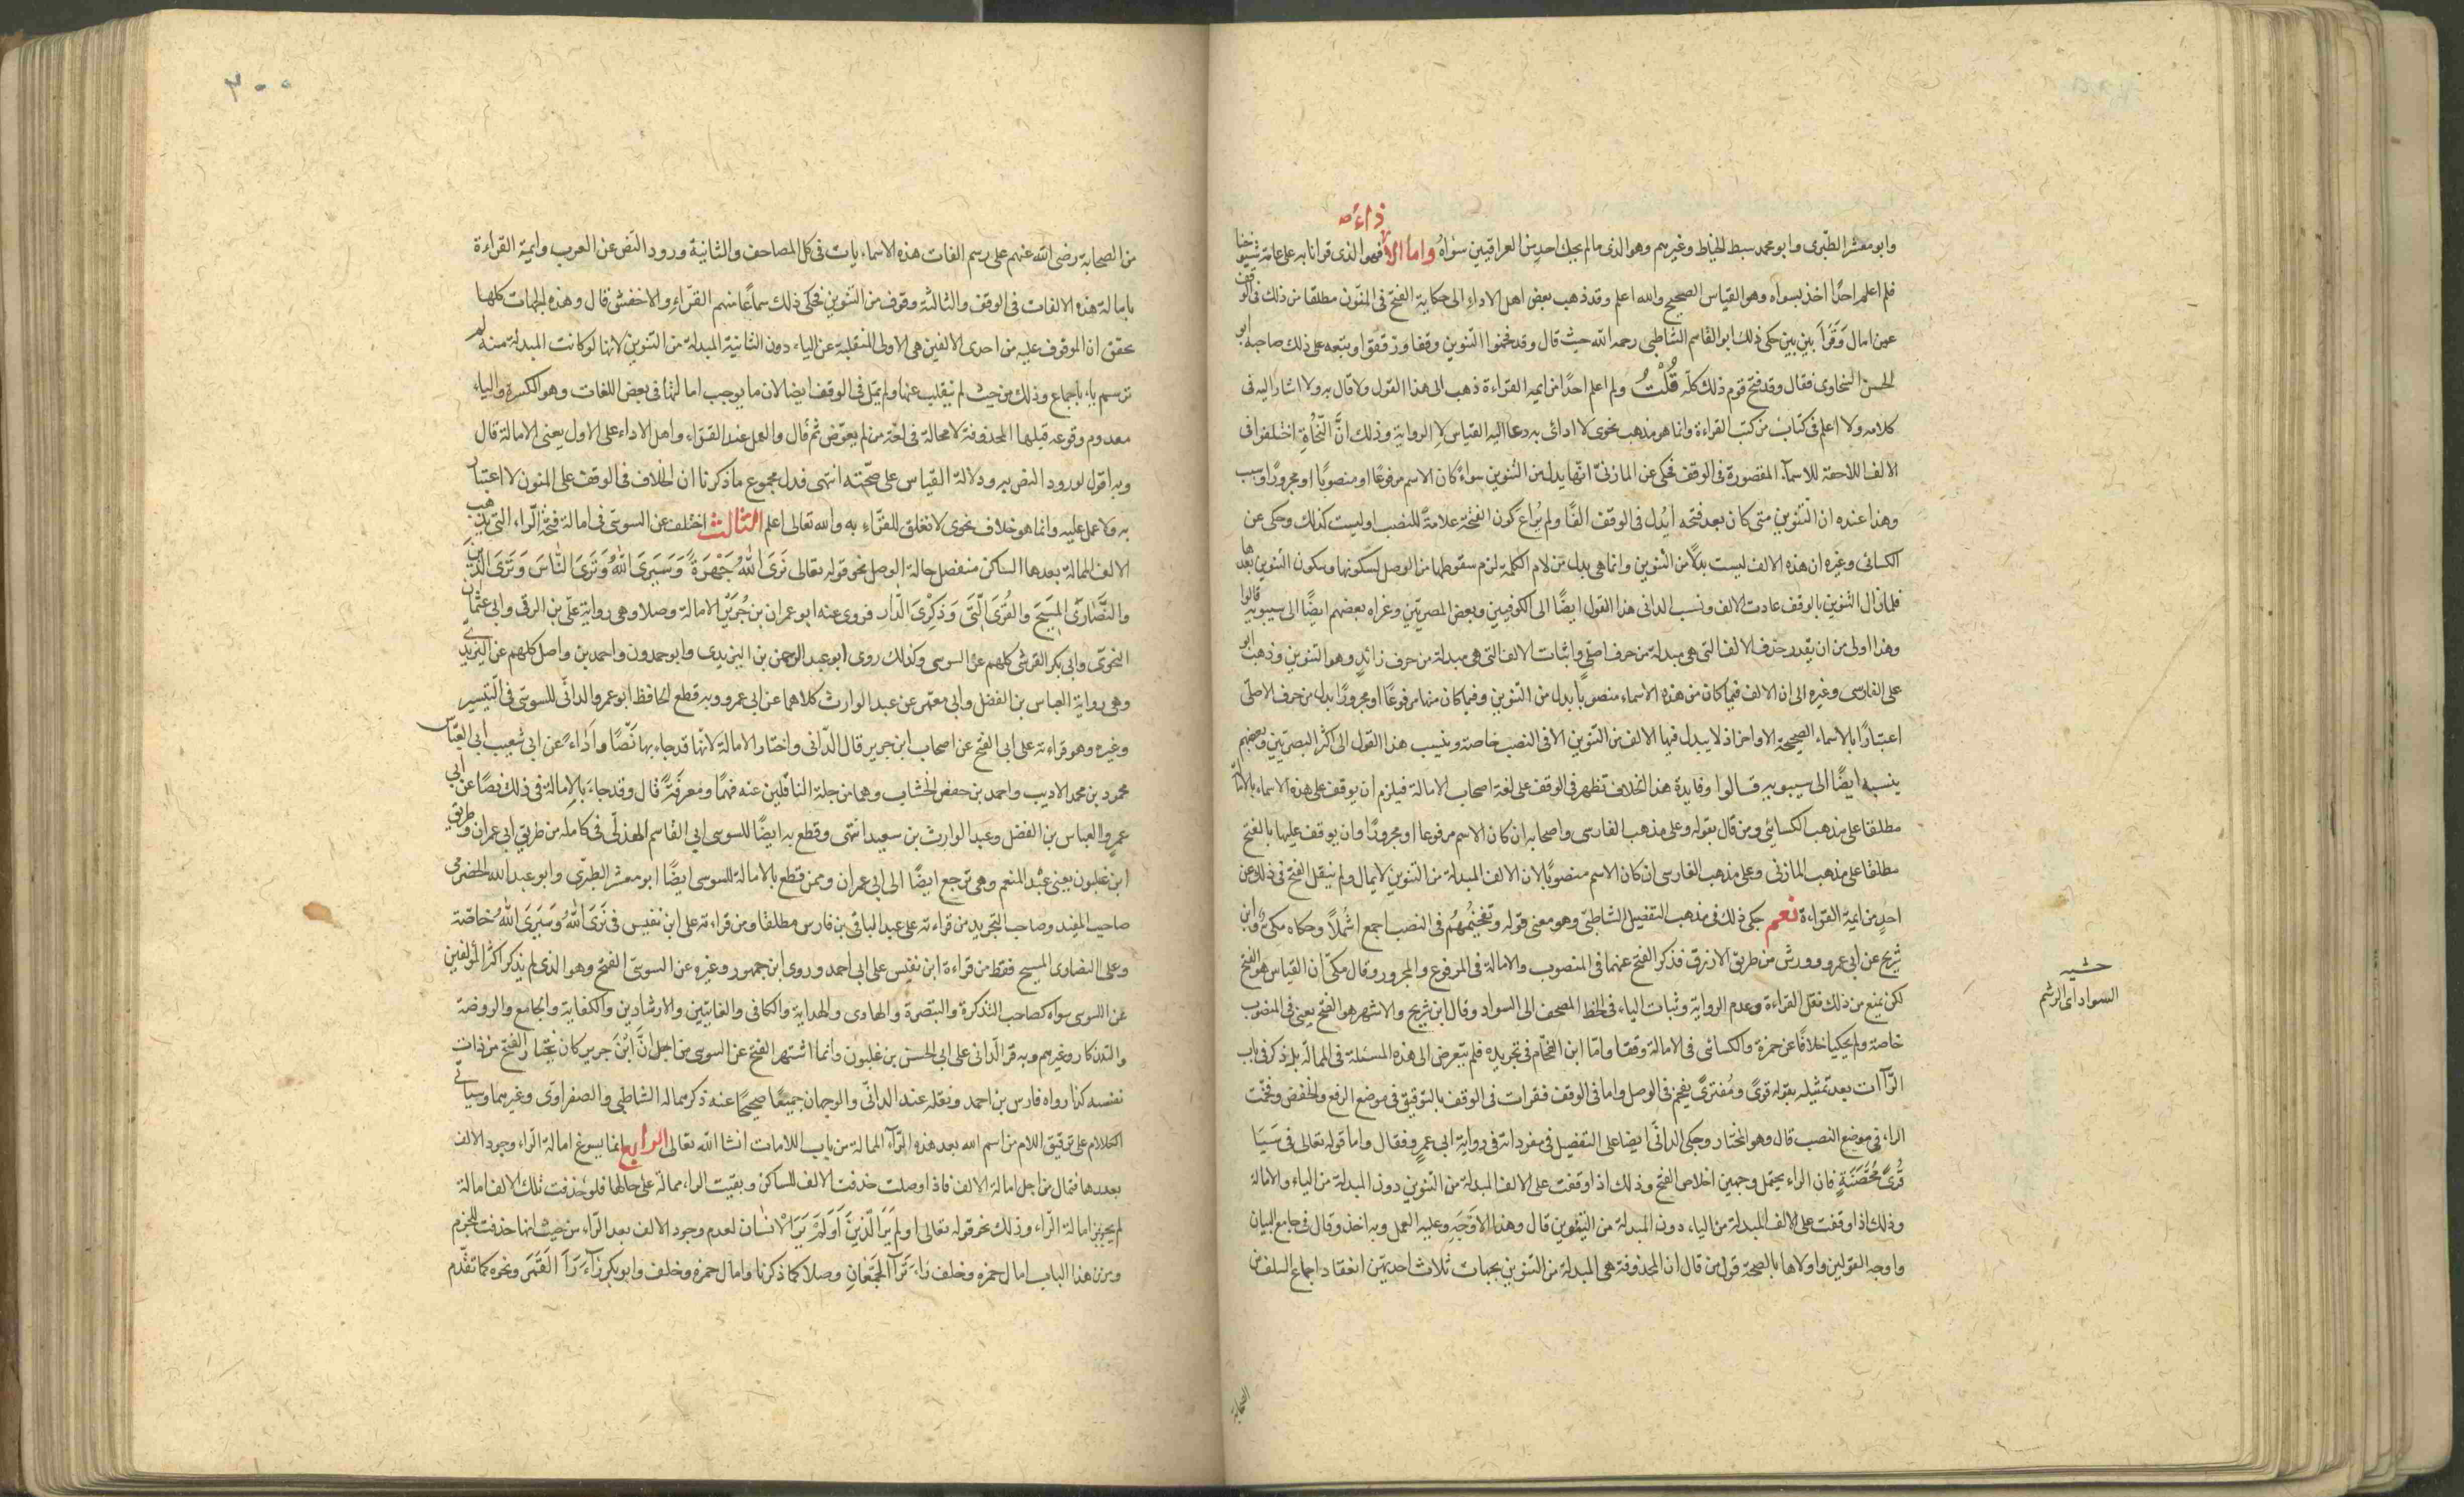 وابو معشر الطبرى وابو محمد سبط الخياط وغيرهم وهو الذى مالم يحك احد من العراقيين سواه واما الاداء فهو الذى قرانا به على عامة شيوخنا
فلم اعلم احدًا اخذ بسواه وهو القياس الصحيح والله اعلم وقد ذهب بعض اهل الاداء الى حكاية الفتح فى المنون مطلقا من ذلك فى الوقف
عمن امال وَقَرَأ بين بين حكى ذلك ابو القاسم الشاطبى رحمه الله حيث قال وقد فخموا التنوين وقفا ورققوا وتبعه على ذلك صاحبه ابو
الحسن السخاوى فقال وقد فتح قوم ذلك كله قُلْتُ ولم اعلم احدًا من ايمه القراءة ذهب الى هذا القول ولا قال به ولا اشار اليه فى
كلامه ولا اعلم فى كتاب من كتب القراءة وانما هو مذهب نحوى لا ادائى به دعا اليه القياس لا الرواية وذلك انَّ النّحُاة اختلفوا فى
الالف اللاحقة للاسماء المقصورة فى الوقف فحكى عن المازنىّ انها بدل من التنوين سواءً كان الاسم مرفوعًا او منصوبًا او مجرورًا وسبب
وهذا عنده ان التنوين متى كان بعد فتحه اُبدل فى الوقف الفًا ولم يُراع كون الفتحة علامةً للنصب او ليست كذلك وحكى عن
الكسائى وغيره ان هذه الالف ليست بدلًا من التنوين وانما هى بدل من لام الكلمة لزم سقوطها من الوصل لسكونها وسكون التنوين بعدها
فلما زال التنوين بالوقف عادت الالف ونسب الدانى هذا القول ايضًا الى الكوفيين وبعض البصريّين وعزاه بعضهم ايضًا الى سيبويه قالوا
وهذا اولى من ان يقدر حذف الالف التى هى مبدلة من حرف اصلىٍ واثبات الالف التى هى مبدلة من حرف زائدٍ وهو التنوين وذهب ابو
على الفارسى وغيره الى ان الالف فيما كان من هذه الاسماء منصوبا بدل من التنوين وفيما كان منها مرفوعًا او مجرورًا بدل من حرف الاصلى
اعتبارًا بالاسماء الصحيحة الاواخر اذ لا يبدل فيها الالف من التنوين الا فى النصب خاصة وينسب هذا القول الى اكثر البصريّين وبعضهم
ينسبه ايضًا الى سيبويه قالوا وفايدة هذا الخلاف تظهر فى الوقف على لغة اصحاب الامالة فيلزم ان يوقف على هذه الاسماء بالامالة
مطلقا على مذهب الكسائى ومن قال بقوله وعلى مذهب الفارسى واصحابه ان كان الاسم مرفوعا او مجرورًا وان يوقف عليها بالفتح
مطلقا على مذهب المازنى وعلى مذهب الفارسى ان كان الاسم منصوبًا لان الالف المبدلة من التنوين لا تمال ولم ينقل الفتح فى ذلك عن
احدٍ من ايمة القراءة نعم حكى ذلك فى مذهب التفصيل الشاطبىّ وهو معنى قوله وتفخيمُهُم فى النصب اجمع اشْمُلاً وحكاه مكىّ وابن
شريح عن ابى عمرو وورش من طريق الازرق فذكر الفتح عنهما فى المنصوب والامالة فى المرفوع والمجرور وقال مكىّ ان القياس هو الفتح
لكن يمنع من ذلك نقل القراءة وعدم الرواية وثبات الياء فى الخط المصحف الى السواد وقال ابن شريح والاشهر هو الفتح يعنى فى المنصوب
خاصة ولم يحكيا خلافًا عن حمزة والكسائى فى الامالة وقفا وامّا ابن الفحّام فى تجريده فلم يتعرض الى هذه المسئلة فى الممالة بل ذكر فى باب
الرّاآت بعد تمثيله بقوله قرىً ومُفترىً يفخم فى الوصل واما فى الوقف فقرات فى الوقف بالترقيق فى موضع الرفع والخفض وفخّمت
الراء فى موضع النصب قال وهو المختار وحكى الدانىّ ايضا على التفصيل فى مفرداته فى رواية ابى عمرٍو فقال واما قوله تعالى فى سَبَا
قُرًى مُحَصَّنَةٍ فان الراء يحتمل وجهين اخلاص الفتح وذلك اذا وقفت على الالف المبدلة من التنوين دون المبدلة من الياء والامالة
وذلك اذا وقفت على الالف المبدلة من الياء دون المبدلة من التنوين قال وهذا الاوْجَه وعليه العمل وبه اخذ وقال فى جامع البيان
واوجه القولين واولاها بالصحة قول من قال ان المحذوفة هى المبدلة من التنوين بجهات ثلاث احديهّن انعقاد اجماع السلف من
حشيه
السواد اى الرسم
الصحابة
٣٠٠
من الصحابة رضى الله عنهم على رسم الفات هذه الاسماء يات فى كل المصاحف والثانية ورود النص عن العرب وايمة القراءة
بامالة هذه الالفات فى الوقف والثالثة وقوف من التنوين فحكى ذلك سماعًا منهم الفرّاءِ والاخفش قال وهذه الجهات كلها
تحقق ان الموقوف عليه من احدى الالفين هى الاولى المنقلبة عن الياء دون الثانية المبدلة من التنوين لانها لو كانت المبدلة منه لم
ترسم ياءً باجماع وذلك من حيث لم تقلب عنها ولم يُمَل فى الوقف ايضا لان ما يوجب امالتها فى بعض اللغات وهو الكسرة والياء
معدوم وقوعه قبلها المحذوفة لا محالة فى لغة من لم يعوّض ثم قال والعمل عند القرّاء واهل الاداء على الاول يعنى الامالة قال
وبه اقول لورود النص به ودلالة القياس على صحّته انتهى فدل مجموع ما ذكرنا ان الخلاف فى الوقف على المنون لا اعتبار
به ولا عمل عليه وانما هو خلاف نحوى لا تعلق للقرّاء به والله تعالى اعلم الثالث اختلف عن السوسى فى امالة فتحة الرّاء التى يذهب
الالف الممالة بعدها الساكن منفصل حالة الوصل نحو قوله تعالى نَرَىَ اللهَ جَهْرَةً وَسَيَرَىَ اللهُ وَتَرَىَ النّاسَ وَتَرَىَ الَّذين
والنَّصَارَىَ المسِيَحَ والقُرَىَ الّتَىِ وَذِكِرْىَ الدّارِ فروى عنه ابو عمران بن جُريْرٍ الامالة وصلا وهى رواية علىّ بن الرقى وابى عثمان
النحوىّ وابى بكر القرشى كلهم عن السوسى وكذلك روى ابو عبد الرحمن بن اليزيدى وابو حمدون واحمد بن واصل كلهم عن اليزيدى
وهى رواية العباس بن الفضل وابى معمر عن عبد الوارث كلاهما عن ابى عمرو وبه قطع الحافظ ابو عمرو الدانىّ للسوسى فى التيسير
وغيره وهو قراءته على ابى الفتح عن اصحاب ابن جرير قال الدّانى واختار الامالة لانها قد جاء بها نَصًّا واَدَاءً عن ابى شعيب ابى العبّاس
محمود بن محمد الاديب واحمد بن حفص الخشاب وهما من جلة الناقلين عنه فهمًا ومعرفَةً قال وقد جاءَ بالاِمالة فى ذلك نصًا عن ابى
عمرٍو العباس بن الفضل وعبد الوارث بن سعيد انتهى وقطع به ايضًا للسوسى ابى القاسم الهذلّى فى كامله من طريق ابى عمران وطريق
ابن غلبون يعنى عبْد المنعم وهى ترجع ايضًا الى ابى عمران وممن قطع بالامالة للسوسى ايضًا ابو معشر الطبرّى وابو عبد الله الحضرمى
صاحب المفيد وصاحب التجريد من قراءته على عبد الباقى بن فارس مطلقا ومن قراءته على ابن نفيس فى نَرَىَ اللهَ وَسَيَرَىَ اللهُ خاصّة
وعلى النصارى المسيح فقط من قراءة ابن نفيس على ابى احمد وروى ابن جمهور وغيره عن السوسىّ الفتح وهو الذى لم يذكر اكثر المؤلفين
عن السوسى سواه كصاحب التذكرة والتبصرة والهادى والهداية والكافى والغايتّين والارشادين والكفاية والجامع والروضة
والتذكار وغيرهم وبه قرا الدّانى على ابى الحسن بن غلبون وانما اشتهر الفتح عن السوسى من اجل انَّ ابْنَ جرير كان يختار الفتح من ذات
نفسه كذا رواه فارس بن احمد ونقله عنه الدانّى والوجهان جميعًا صحيحًا عنه ذكرهما له الشاطبى والصفراوى وغيرهما وسياتى
الكلام على ترقيق اللام من اسم الله بعد هذه الرّآء الممالة من باب اللامات انشا الله تعالى الرابع انما يسوغ امالة الرّاء وجود الالف
بعدها فتمال من اجل امالة الالف فاذا وصلت حذفت الالف للساكن وبقيت الراء ممالة على حالها فلو حذفت تلك الالف امالة
لم يجز امالة الرّاء وذلك نحو قوله تعالى اولم يَرَ الّذينَ اَوَلمْ يَرَ الْانسان لعدم وجود الالف بعد الرّاء من حيث انها حذفت للجزم
ومن هذا الباب امال حمزه وخلف رَاءَ تَرَآءَ الجَمْعَانِ وصلا كما ذكرنا وامال حمزه وخلف وابو بكر رَآءَ رَأَ القَمَرَ ونحوه كما تقدّم